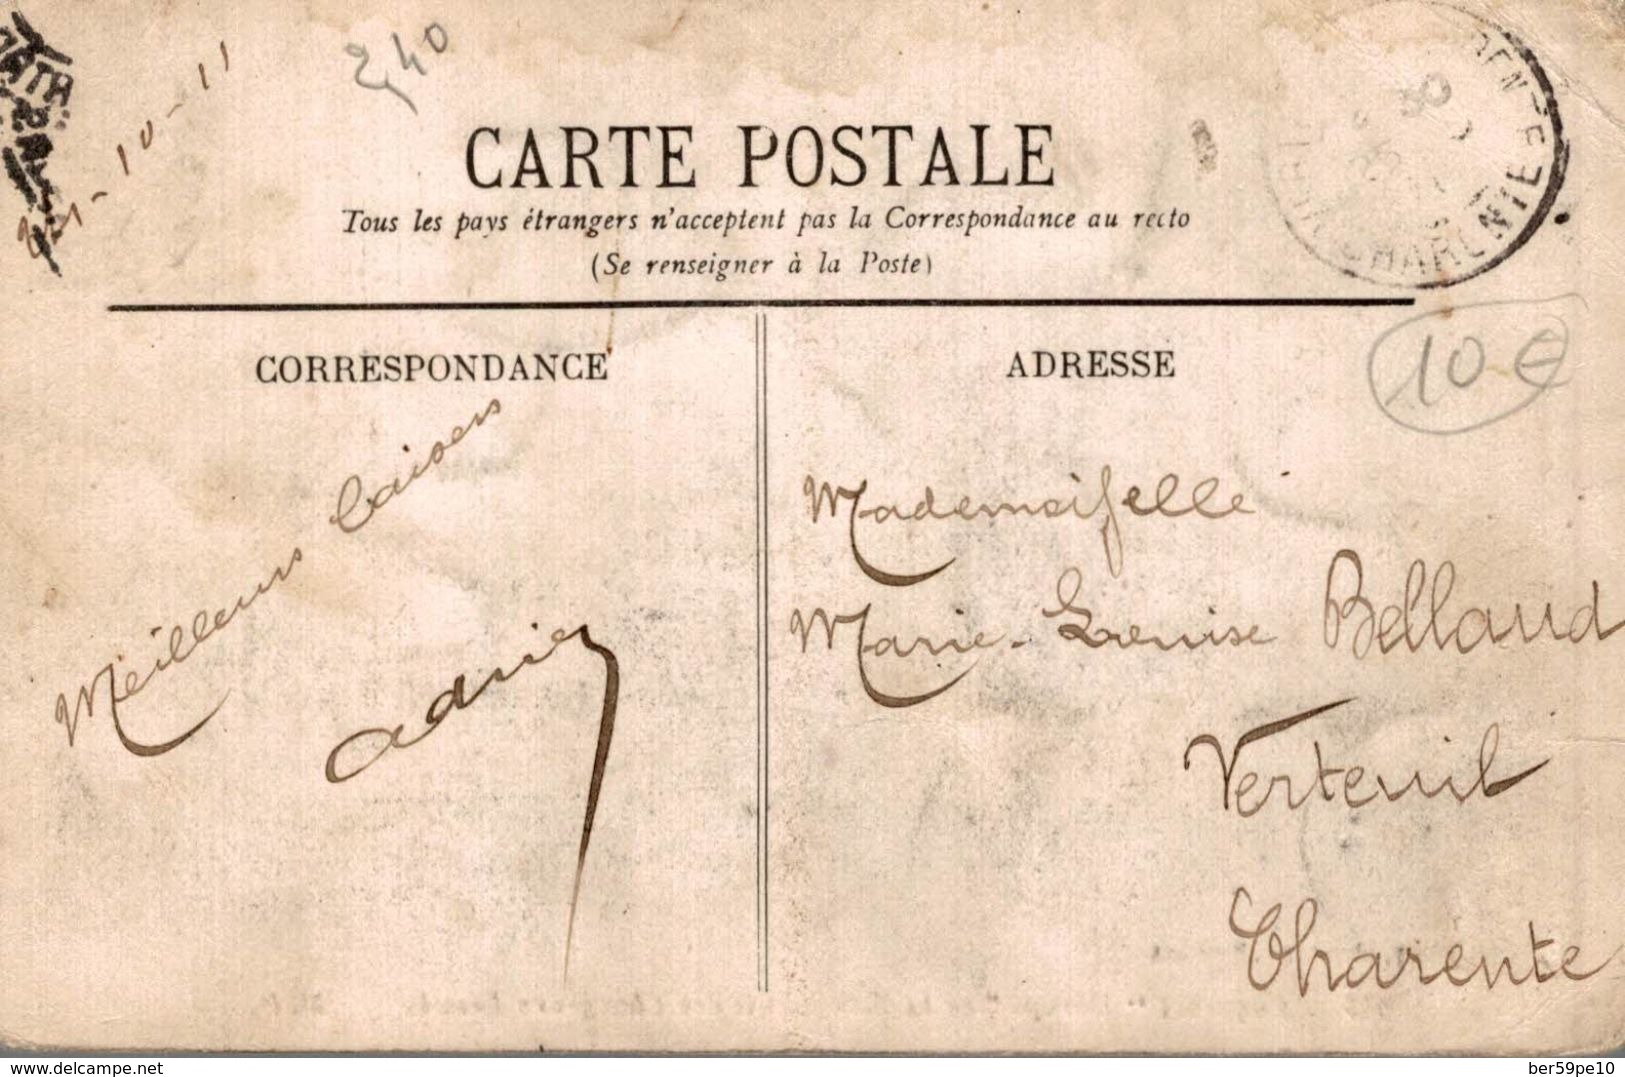 2,40
CARTE POSTALE
Tous les pays étrangers n'acceptent pas la Correspondance au recto
(Se renseigner à la Poste)
CORRESPONDANCE
ADRESSE
10 €
-10-11
Meilleurs baisers
Mademoiselle
Marie-Louise Bellaud
Verteuil
Charente
CHARENTE
www.delcampe.net
ber59pe10